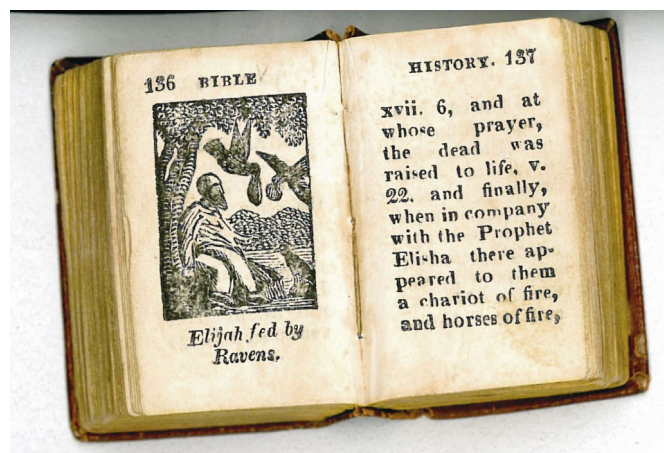 136 BIBLE
Elijah fed by
Ravens.
HISTORY. 137
xvii. 6, and at
whose prayer,
the dead was
raised to life, v.
22. and finally,
when in company
with the Prophet
Elisha there ap-
peared to them
a chariot of fire,
and horses of fire,